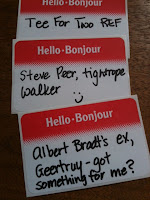 Hello·Bonjour
Tee For Two REF
Hello·Bonjour
Steve Peer, tightrope
walker
Hello·Bonjour
Albert Bradt's ex,
Geertruy - got
something for me?